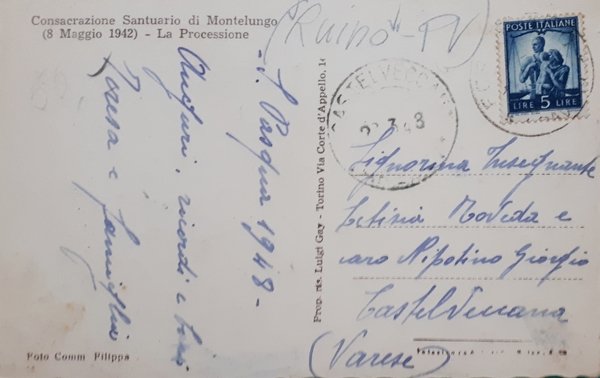 Consacrazione Santuario di Montelungo
(8 Maggio 1942) - La Processione
(Ruino - PV)
POSTE ITALIANE
LIRE 5 LIRE
CASTELVECCANA
- S. Pasqua 1948 -
Auguri, ricordi e baci
Teresa e famiglia
Prop. ris. Luigi Gay - Torino Via Corte d'Appello, 1
Signorina Insegnante
Letizia Roveda e
caro Nipotino Giorgio
Castelveccana
(Varese)
Foto Comm Filippa